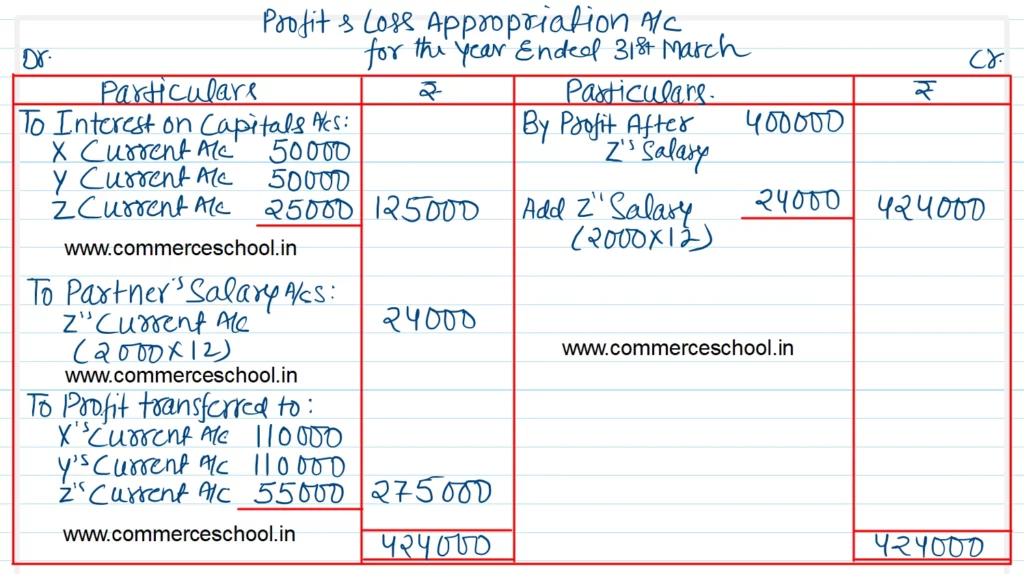 Profit & Loss Appropriation A/c
for the Year Ended 31st March
Dr. Cr.
Particulars ₹ Particulars. ₹
To Interest on Capitals A/cs: By Profit After 400000
X Current A/c 50000 Z's Salary
Y Current A/c 50000
Z Current A/c 25000 125000 Add Z" Salary 24000 424000
(2000×12)
www.commerceschool.in
To Partner's Salary A/cs:
Z" Current A/c 24000
(2000×12) www.commerceschool.in
www.commerceschool.in
To Profit transferred to:
X's Current A/c 110000
Y's Current A/c 110000
Z's Current A/c 55000 275000
www.commerceschool.in
424000 424000